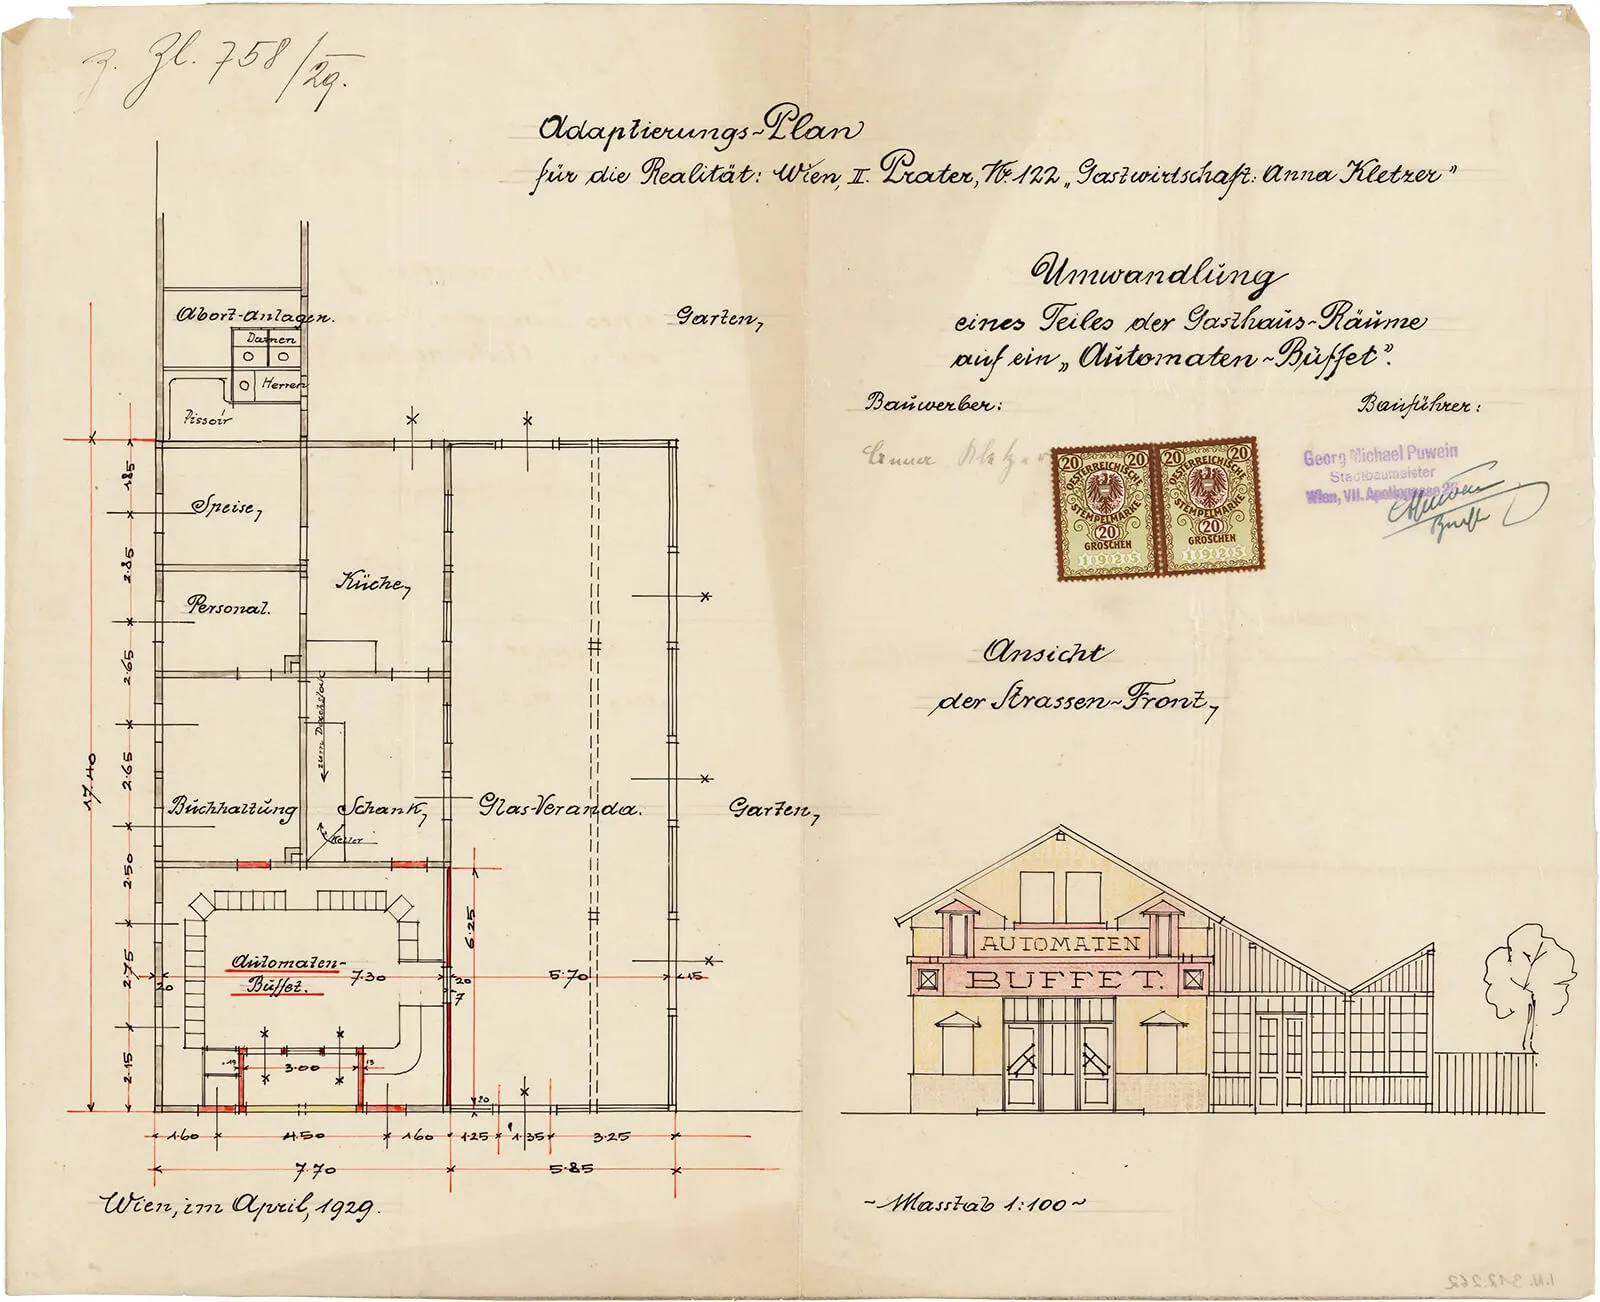 z. Zl. 758/29.
Adaptierungs-Plan
für die Realität: Wien, II. Prater, Nr. 122 „Gastwirtschaft: Anna Kletzer"
Umwandlung
eines Teiles der Gasthaus-Räume
auf ein „Automaten-Büffet".
Bauwerber:
Bauführer:
Anna Kletzer
20 20
ÖSTERREICHISCHE
STEMPELMARKE
20
GROSCHEN
1 9 2 5
20 20
ÖSTERREICHISCHE
STEMPELMARKE
20
GROSCHEN
1 9 2 5
Georg Michael Puwein
Stadtbaumeister
Wien, VII. Apollogasse 25
Abort-Anlagen.
Damen
Herren
Pissoir
Garten,
Speise,
Küche,
Personal.
zum Durchlass
Buchhaltung
Schank,
Keller
Glas-Veranda.
Garten,
Automaten-
Büffet.
17.40
1.85
2.85
2.65
2.65
2.50
2.75
2.15
6.25
20
7.30
20
7
5.70
15
15
3.00
15
20
1.60
4.50
1.60
1.25
1.35
3.25
7.70
5.85
Wien, im April, 1929.
Ansicht
der Strassen-Front,
AUTOMATEN
BUFFET.
~Masstab 1:100~
I.N. 312.262